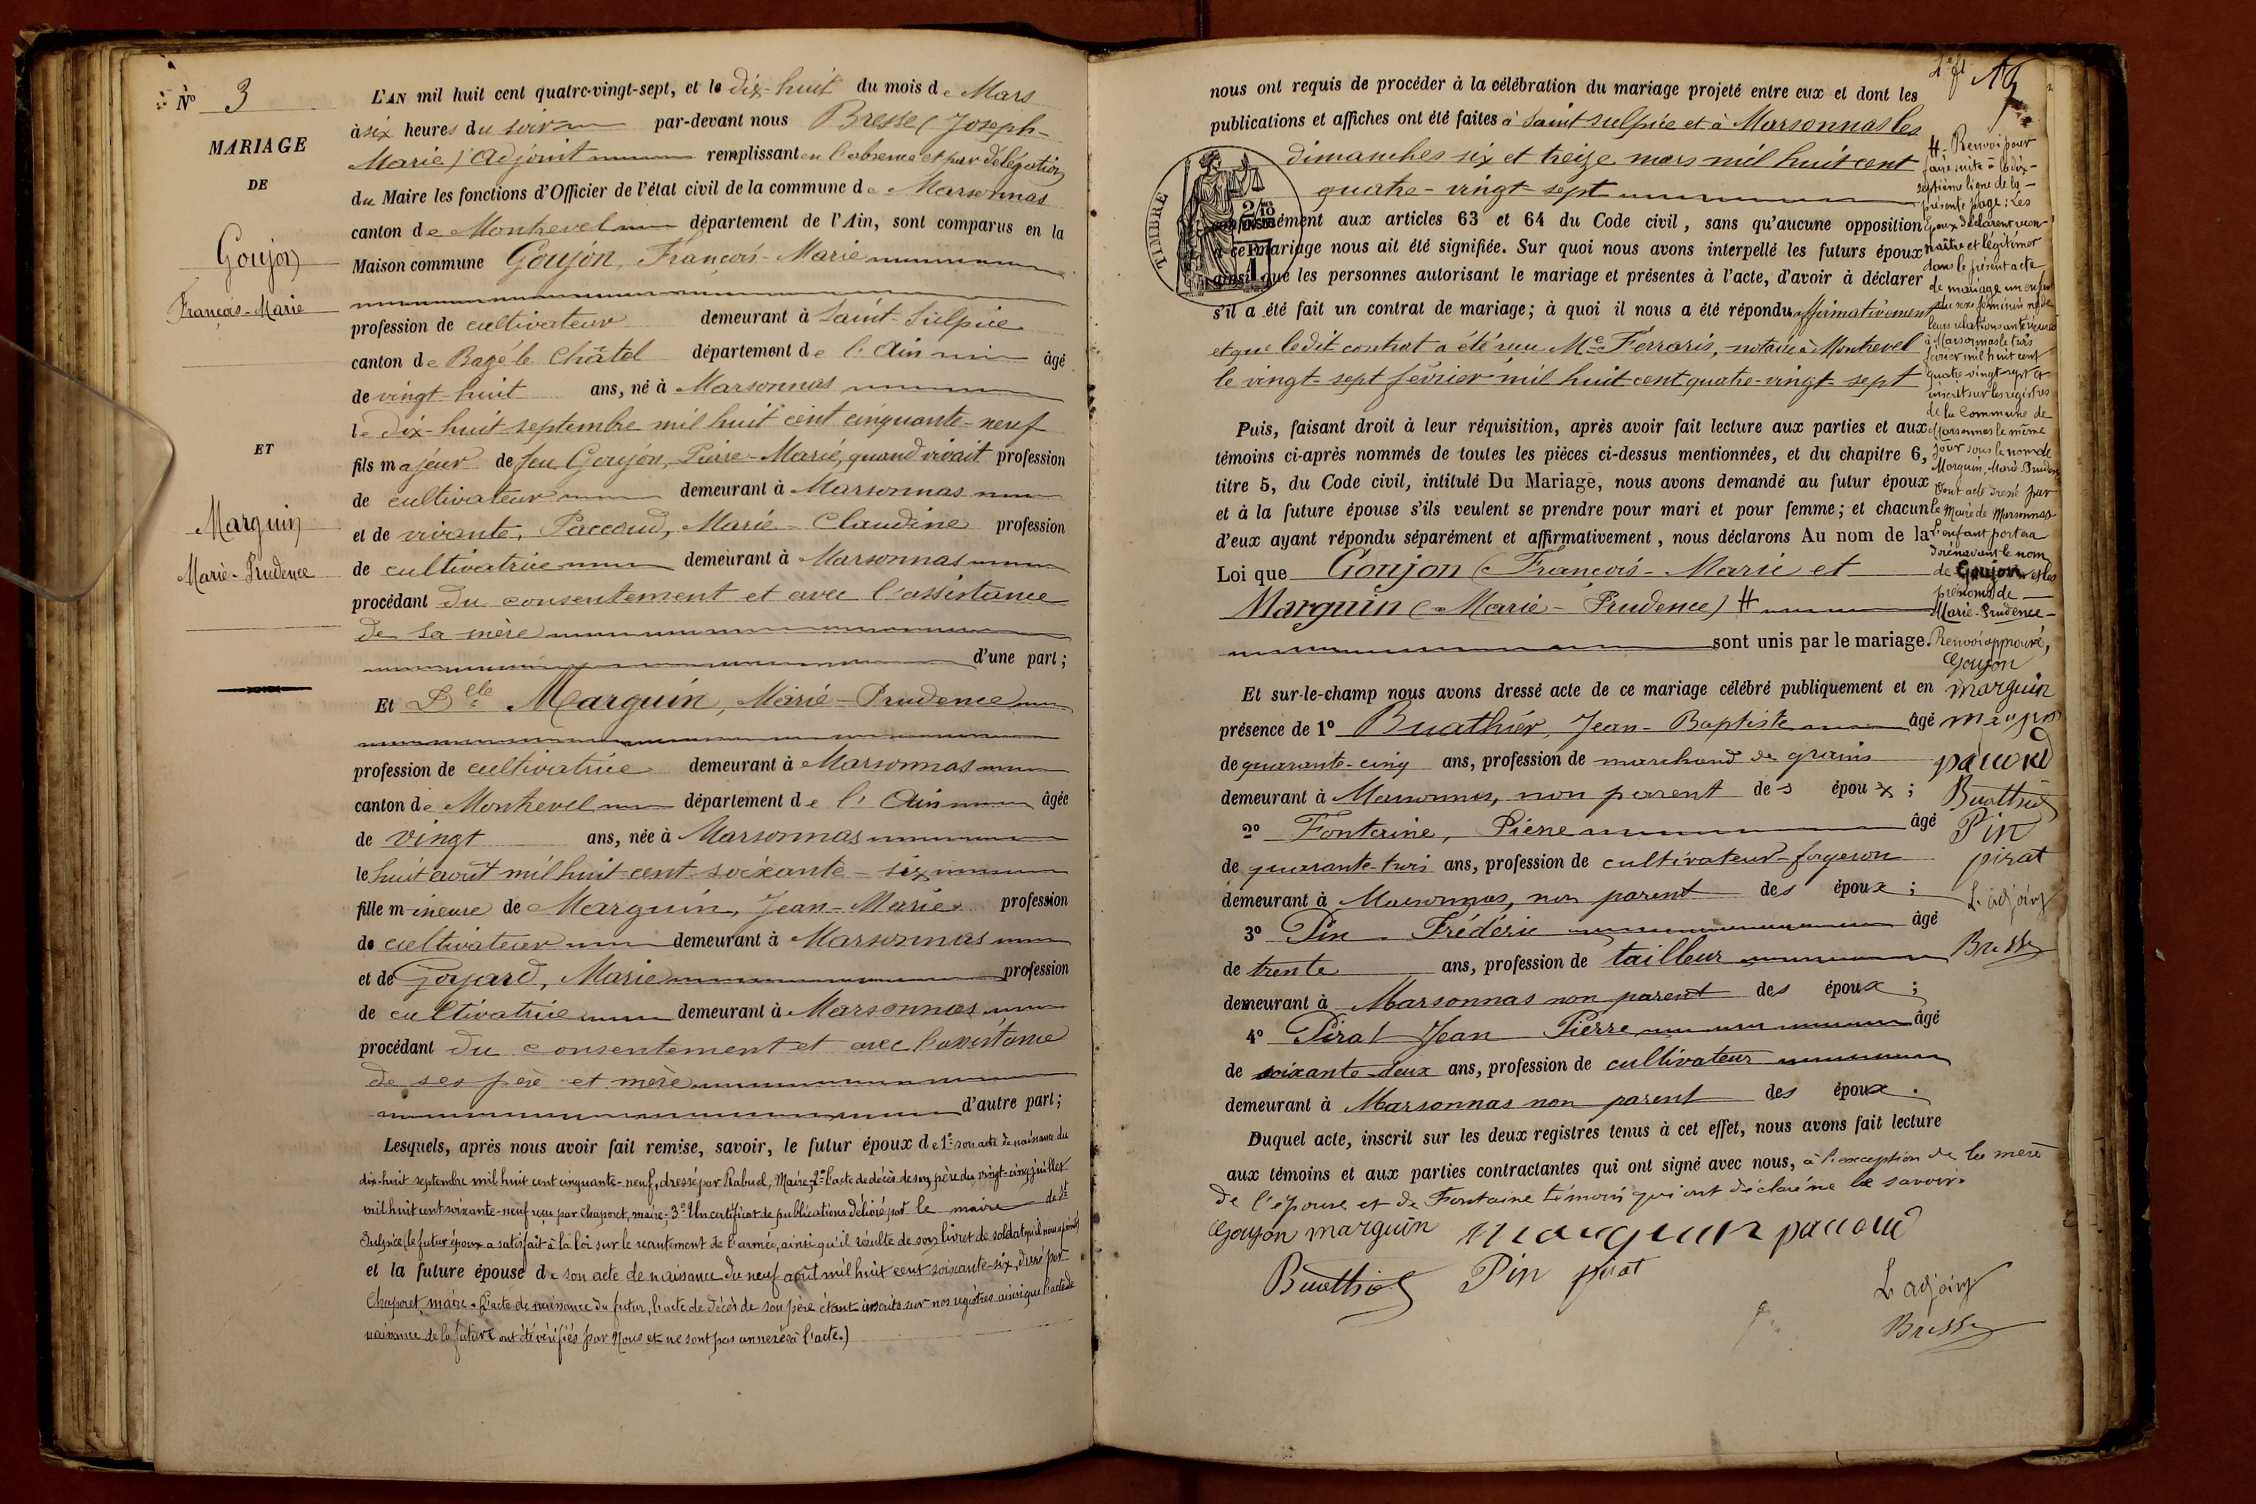 N° 3
MARIAGE
DE
Goujon
François-Marie
ET
Marguin
Marie-Prudence
L'AN mil huit cent quatre-vingt-sept, et le dix-huit du mois de Mars
à six heures du soir par-devant nous Bresse (Joseph-
Marie) Adjoint remplissant en l'absence et par délégation
du Maire les fonctions d'Officier de l'état civil de la commune de Marsonnas
canton de Montrevel département de l'Ain, sont comparus en la
Maison commune Goujon, François-Marie
profession de cultivateur demeurant à Saint-Sulpice
canton de Bagé-le Châtel département de l'Ain âgé
de vingt-huit ans, né à Marsonnas
le dix-huit septembre mil huit cent cinquante-neuf
fils majeur de feu Goujon, Pierre-Marie, quand vivait profession
de cultivateur demeurant à Marsonnas
et de vivante, Paccoud, Marie-Claudine profession
de cultivatrice demeurant à Marsonnas
procédant du consentement et avec l'assistance
de sa mère
d'une part;
Et Dlle Marguin, Marie-Prudence
profession de cultivatrice demeurant à Marsonnas
canton de Montrevel département de l'Ain âgée
de vingt ans, née à Marsonnas
le huit août mil huit cent soixante-six
fille mineure de Marguin, Jean-Marie profession
de cultivateur demeurant à Marsonnas
et de Goyard, Marie profession
de cultivatrice demeurant à Marsonnas
procédant du consentement et avec l'assistance
de ses père et mère
d'autre part;
Lesquels, après nous avoir fait remise, savoir, le futur époux de 1° son acte de naissance du
dix-huit septembre mil huit cent cinquante-neuf, dressé par Rabuel, Maire; 2° l'acte de décès de son père du vingt-cinq juillet
mil huit cent soixante-neuf reçu par Chaporet, maire; 3° Un certificat de publications délivré par le maire de St
Sulpice (le futur époux a satisfait à la loi sur le recrutement de l'armée, ainsi qu'il résulte de son livret de soldat qu'il nous a
et la future épouse de son acte de naissance du neuf août mil huit cent soixante-six, dressé par
Chaporet, maire. (L'acte de naissance du futur, l'acte de décès de son père étant inscrits sur nos registres ainsi que l'acte de
naissance de la future ont été vérifiés par Nous et ne sont pas annexés à l'acte.)
nous ont requis de procéder à la célébration du mariage projeté entre eux et dont les
publications et affiches ont été faites à Saint Sulpice et à Marsonnas les
dimanches six et treize mars mil huit cent
quatre-vingt-sept
TIMBRE
conformément aux articles 63 et 64 du Code civil, sans qu'aucune opposition
à ce mariage nous ait été signifiée. Sur quoi nous avons interpellé les futurs époux
ainsi que les personnes autorisant le mariage et présentes à l'acte, d'avoir à déclarer
s'il a été fait un contrat de mariage; à quoi il nous a été répondu affirmativement
et que le dit contrat a été reçu Me Ferraris, notaire à Montrevel
le vingt-sept février mil huit cent quatre-vingt-sept
Puis, faisant droit à leur réquisition, après avoir fait lecture aux parties et aux
témoins ci-après nommés de toutes les pièces ci-dessus mentionnées, et du chapitre 6,
titre 5, du Code civil, intitulé Du Mariage, nous avons demandé au futur époux
et à la future épouse s'ils veulent se prendre pour mari et pour femme; et chacun
d'eux ayant répondu séparément et affirmativement, nous déclarons Au nom de la
Loi que Goujon (François-Marie et
Marguin (Marie-Prudence) #
sont unis par le mariage.
Et sur-le-champ nous avons dressé acte de ce mariage célébré publiquement et en
présence de 1° Buathier, Jean-Baptiste âgé
de quarante-cinq ans, profession de marchand de grains
demeurant à Marsonnas, non parent des époux;
2° Fontaine, Pierre âgé
de quarante-trois ans, profession de cultivateur-forgeron
demeurant à Marsonnas, non parent des époux;
3° Pin Frédéric âgé
de trente ans, profession de tailleur
demeurant à Marsonnas non parent des époux;
4° Pirat Jean Pierre âgé
de soixante-deux ans, profession de cultivateur
demeurant à Marsonnas non parent des époux.
Duquel acte, inscrit sur les deux registres tenus à cet effet, nous avons fait lecture
aux témoins et aux parties contractantes qui ont signé avec nous, à l'exception de la mère
de l'épouse et de Fontaine témoin qui ont déclaré ne le savoir.
Goujon marguin marguin paccoud
Buathier Pin pirat
L'adjoint
Bresse
# Renvoi pour
faire suite à la dix-
septième ligne de la
présente page: Les
Epoux déclarent recon-
naître et légitimer
dans le présent acte
de mariage un enfant
du sexe féminin né de
leurs relations antérieures
à Marsonnas le trois
février mil huit cent
quatre vingt sept et
inscrit sur les registres
de la Commune de
Marsonnas le même
jour sous le nom de
Marguin, Marie Prudence
dont acte dressé par
le Maire de Marsonnas
L'enfant portera
dorénavant le nom
de Goujon et les
prénoms de
Marie-Prudence
Renvoi approuvé,
Goujon
marguin
marguin
paccoud
Buathier
Pin
pirat
L'adjoint
Bresse